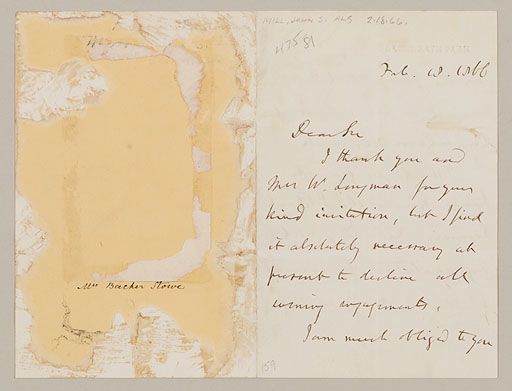 Mrs Beecher Stowe
MILL, JOHN S. ALS 2.18.66.
4758
Feb. 18. 1866
Dear Sir
I thank you and
Mrs W. Longman for your
kind invitation, but I find
it absolutely necessary at
present to decline all
evening engagements.
I am much obliged to you
159